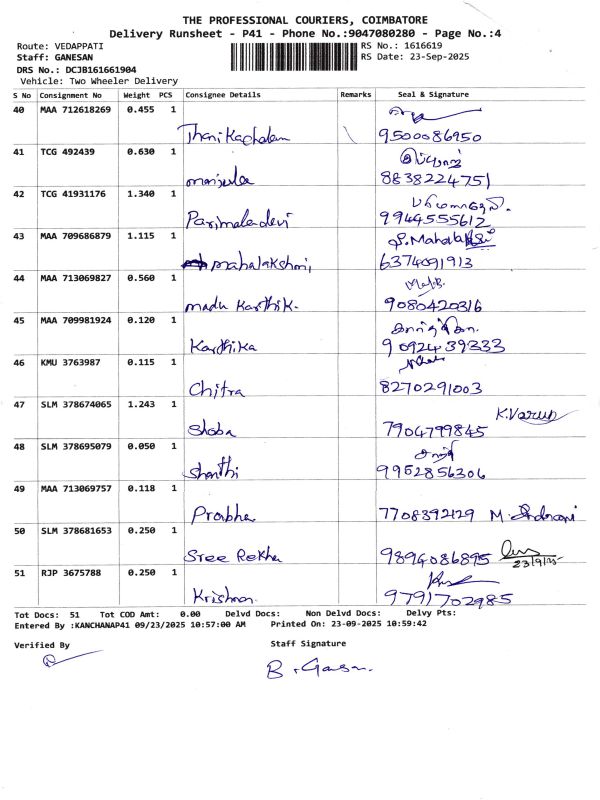 THE PROFESSIONAL COURIERS, COIMBATORE
Delivery Runsheet - P41 - Phone No.:9047080280 - Page No.:4
Route: VEDAPPATI
RS No.: 1616619
Staff: GANESAN
RS Date: 23-Sep-2025
DRS No.: DCJB161661904
Vehicle: Two Wheeler Delivery
S No Consignment No Weight PCS Consignee Details Remarks Seal & Signature
40 MAA 712618269 0.455 1
Thanikachalam 9500086950
41 TCG 492439 0.630 1
manjula 8838224751
42 TCG 41931176 1.340 1 பரிமளாதேவி.
Parimaladevi 9944555612
43 MAA 709686879 1.115 1 S. Mahalakshmi
mahalakshmi 6374091913
44 MAA 713069827 0.560 1
madu Karthik. 9080420316
45 MAA 709981924 0.120 1
Karthika 9092439333
46 KMU 3763987 0.115 1
Chitra 8270291003
47 SLM 378674065 1.243 1 K.Varun
Shoba 7904799845
48 SLM 378695079 0.050 1 சாந்தி
Shanthi 9952856306
49 MAA 713069757 0.118 1
Prabha 7708392129 M. Indrani
50 SLM 378681653 0.250 1
Sree Rekha 9894086895 23/9/25
51 RJP 3675788 0.250 1
Krishnan. 9791702985
Tot Docs: 51 Tot COD Amt: 0.00 Delvd Docs: Non Delvd Docs: Delvy Pts:
Entered By :KANCHANAP41 09/23/2025 10:57:00 AM Printed On: 23-09-2025 10:59:42
Verified By Staff Signature
B. Ganesan.